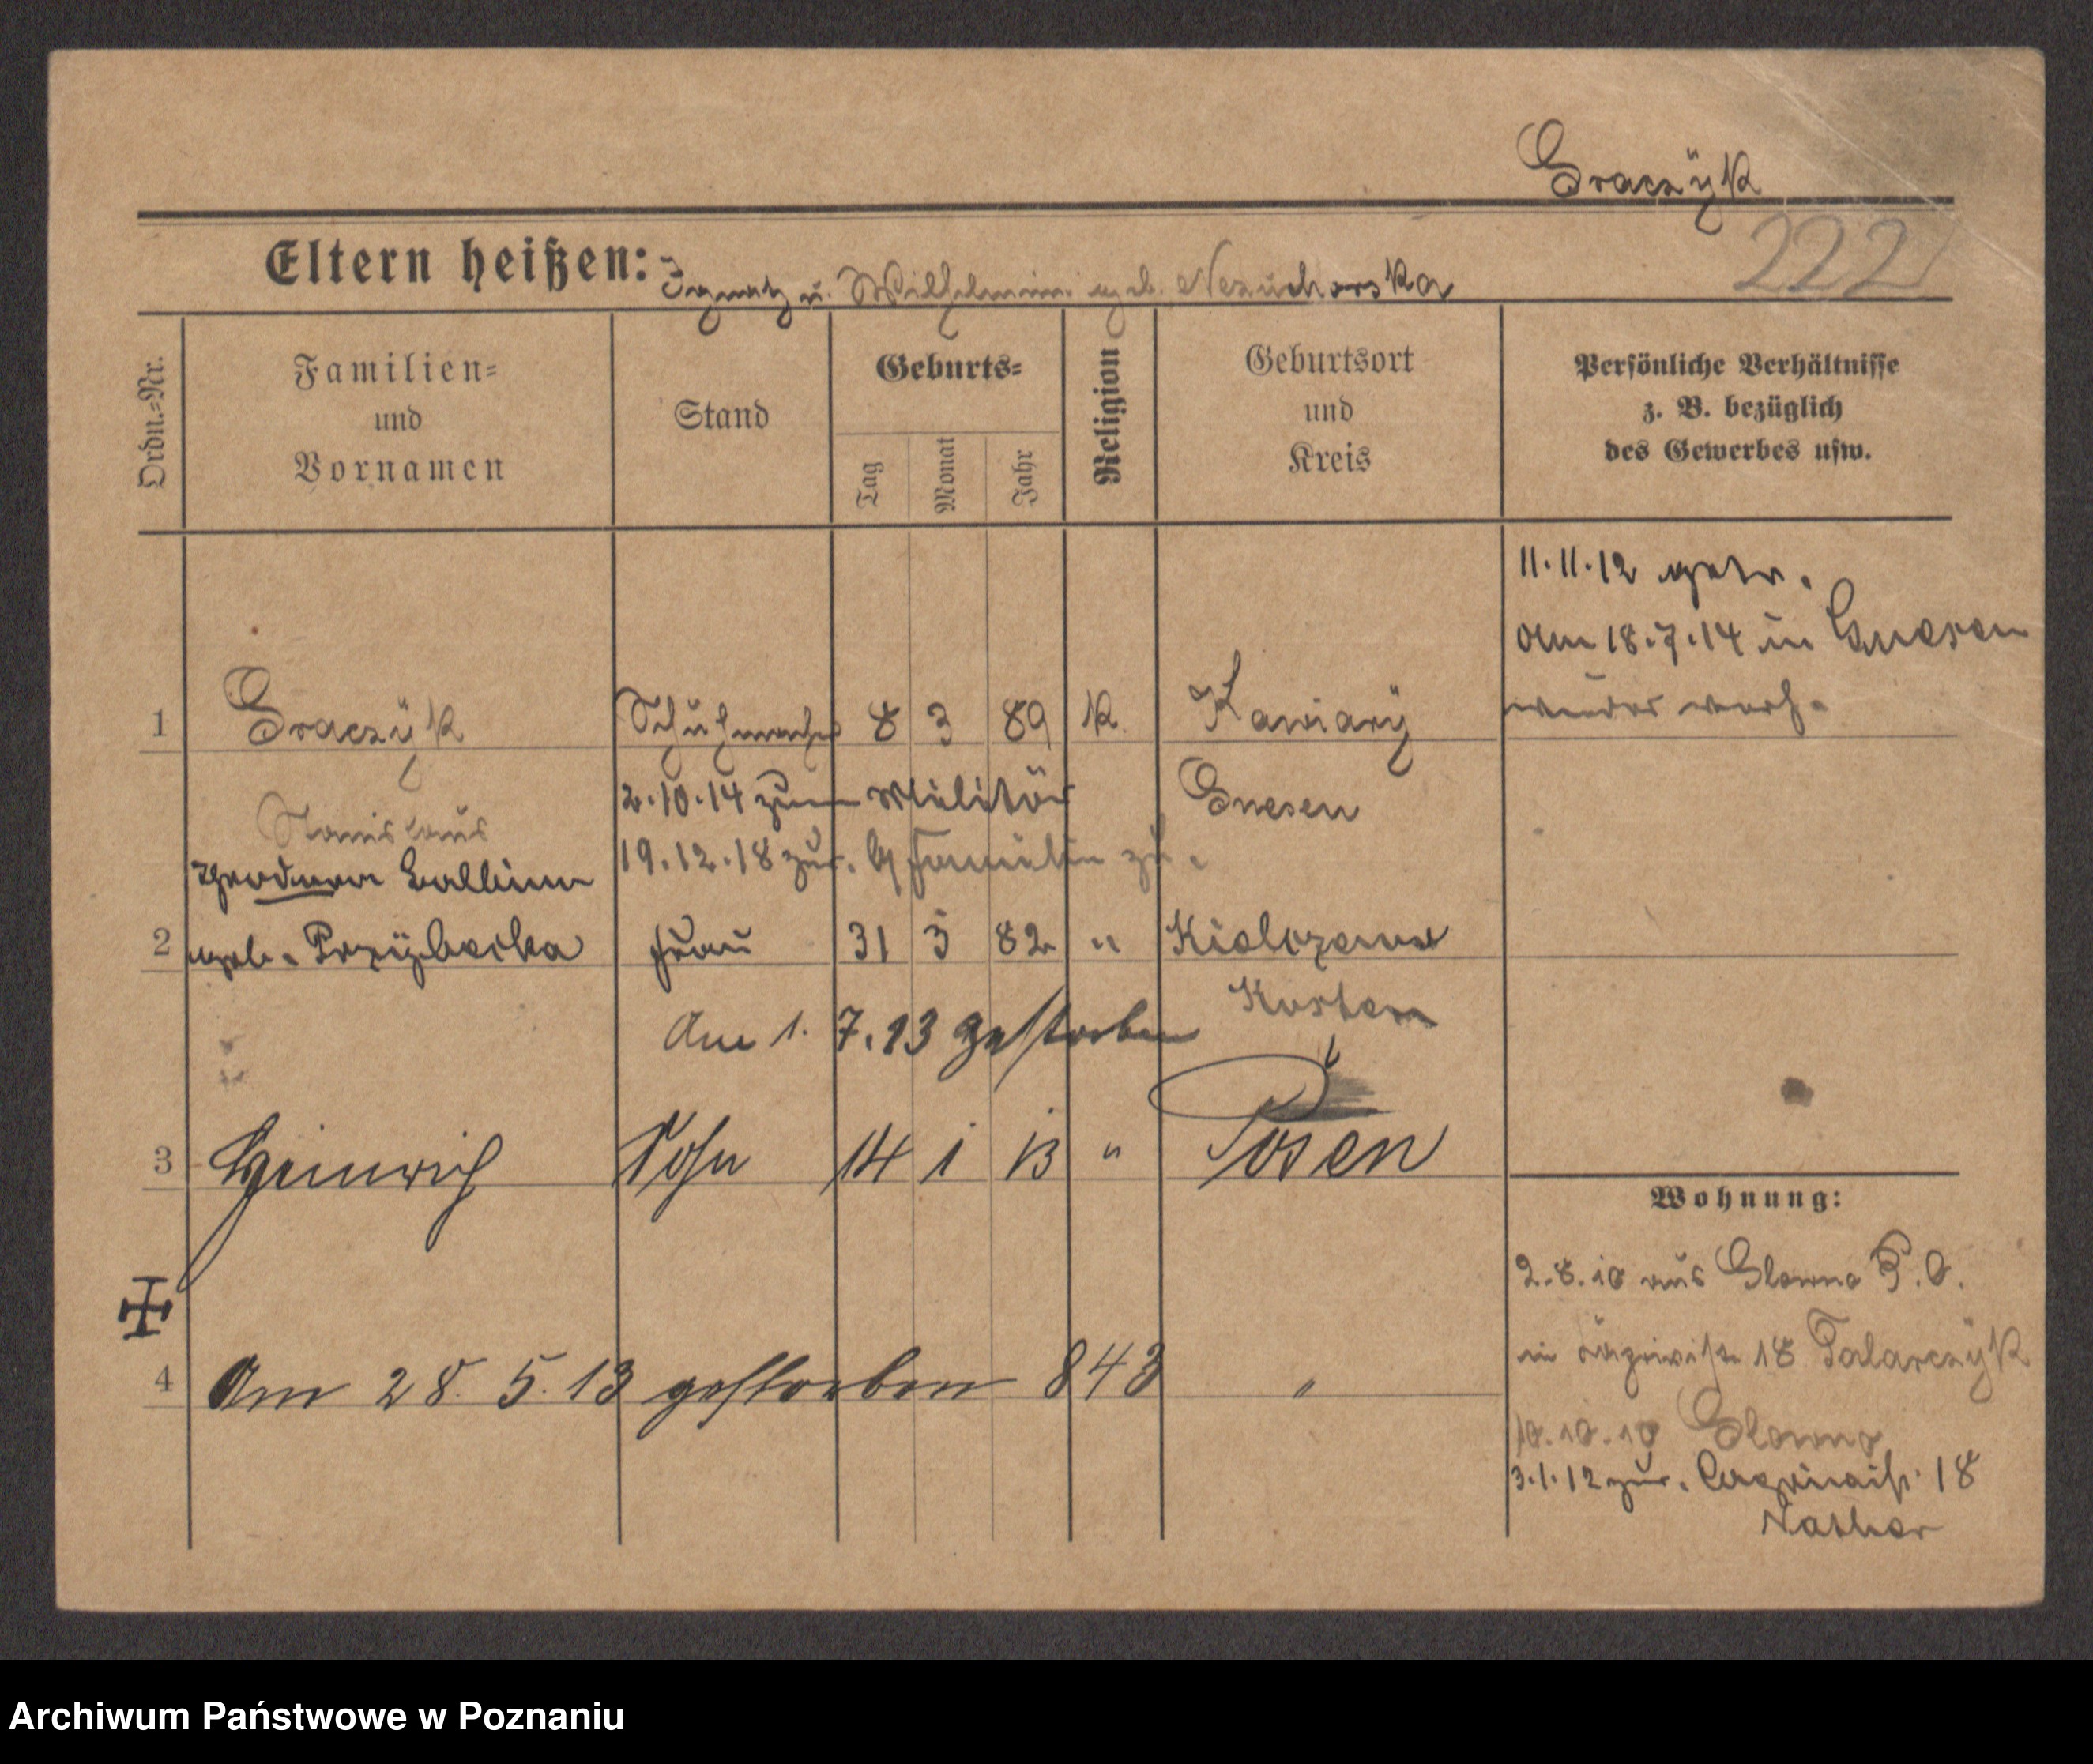 Graczÿk
Eltern heißen: Ignatz u. Wilhelmine geb. Nezuchorska
222
Ordn.=Nr.
Familien=
und
Vornamen
Stand
Geburts=
Tag
Monat
Jahr
Religion
Geburtsort
und
Kreis
Persönliche Verhältnisse
z. B. bezüglich
des Gewerbes usw.
11.11.12 getr.
Am 18.7.14 in Gnesen
wieder verh.
1 Graczÿk Schuhmacher 8 3 89 k. Kawiarÿ
Stanislaus 2.10.14 zum Militär Gnesen
19.12.18 zur. Familie zu.
2 geb. Przÿbecka Frau 31 3 82 "
Kosten
Am 1. 7.13 gestorben
3 Heinrich Sohn 14 1 13 " Posen
4 Am 28. 5. 13 gestorben 843 "
Wohnung:
2.8.10 aus Glowno P. O.
in 18 Talarczÿk
10.10.10 Glowno
3.1.12 zur. 18